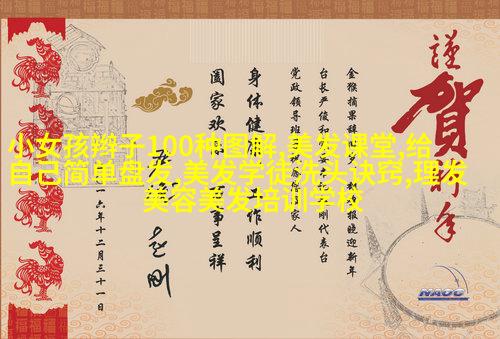 小女孩辫子100种图解,美发课堂,给
自己简单盘发,美发学徒洗头诀窍,理发
美容美发培训学校
謹賀新年
金猴摘果辞 报晓迎新年
台长严俊和党 刚代表台
党政领导班 家人
身体健康 工作顺利
阖家欢 事呈祥
赵刚
一六年十二月三十一日
NAOC